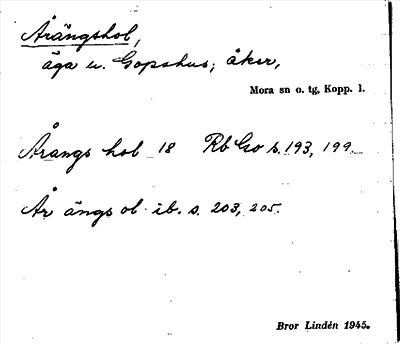 Åråängshol,
äga u. Gopshus; åker,
Mora sn o. tg, Kopp. l.
Årangs hol 18 Rb Go s. 193, 199.
År ängs ol ib. s. 203, 205.
Bror Lindén 1945.